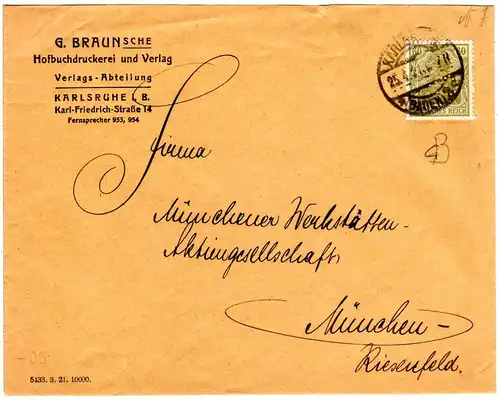 G. BRAUNSCHE
Hofbuchdruckerei und Verlag
Verlags-Abteilung
KARLSRUHE i. B.
Karl-Friedrich-Straße 14
Fernsprecher 953, 954
Firma
Münchener Werkstätten-
Aktiengesellschaft
München-
Riesenfeld.
5133. 3. 21. 10000.